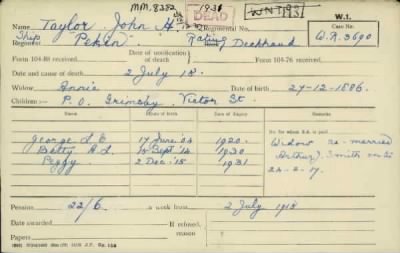 MM. 8352 1931 WNT/931
DEAD
W.1.
Name Taylor John H. Regimental No. Case No.
Ship Regiment "Peken" Rating Rank Deckhand W.R. 3690
Form 104-88 received Date of notification of death Form 104-76 received
Date and cause of death 2 July 18.
Widow Annie Date of birth 27-12-1886.
Children:- P.O. Grimsby. Victor St.
Name. Date of Birth. Date of Expiry.
To whom S.A. is paid
George 17 June '04 1920. Widow re-married
Betty 15 Sept '14 1930 Arthur J. Smith
Peggy 2 Dec '15 1931
Pension 22/6 a week from 2 July 1918
Date awarded If refused, reason
Papers